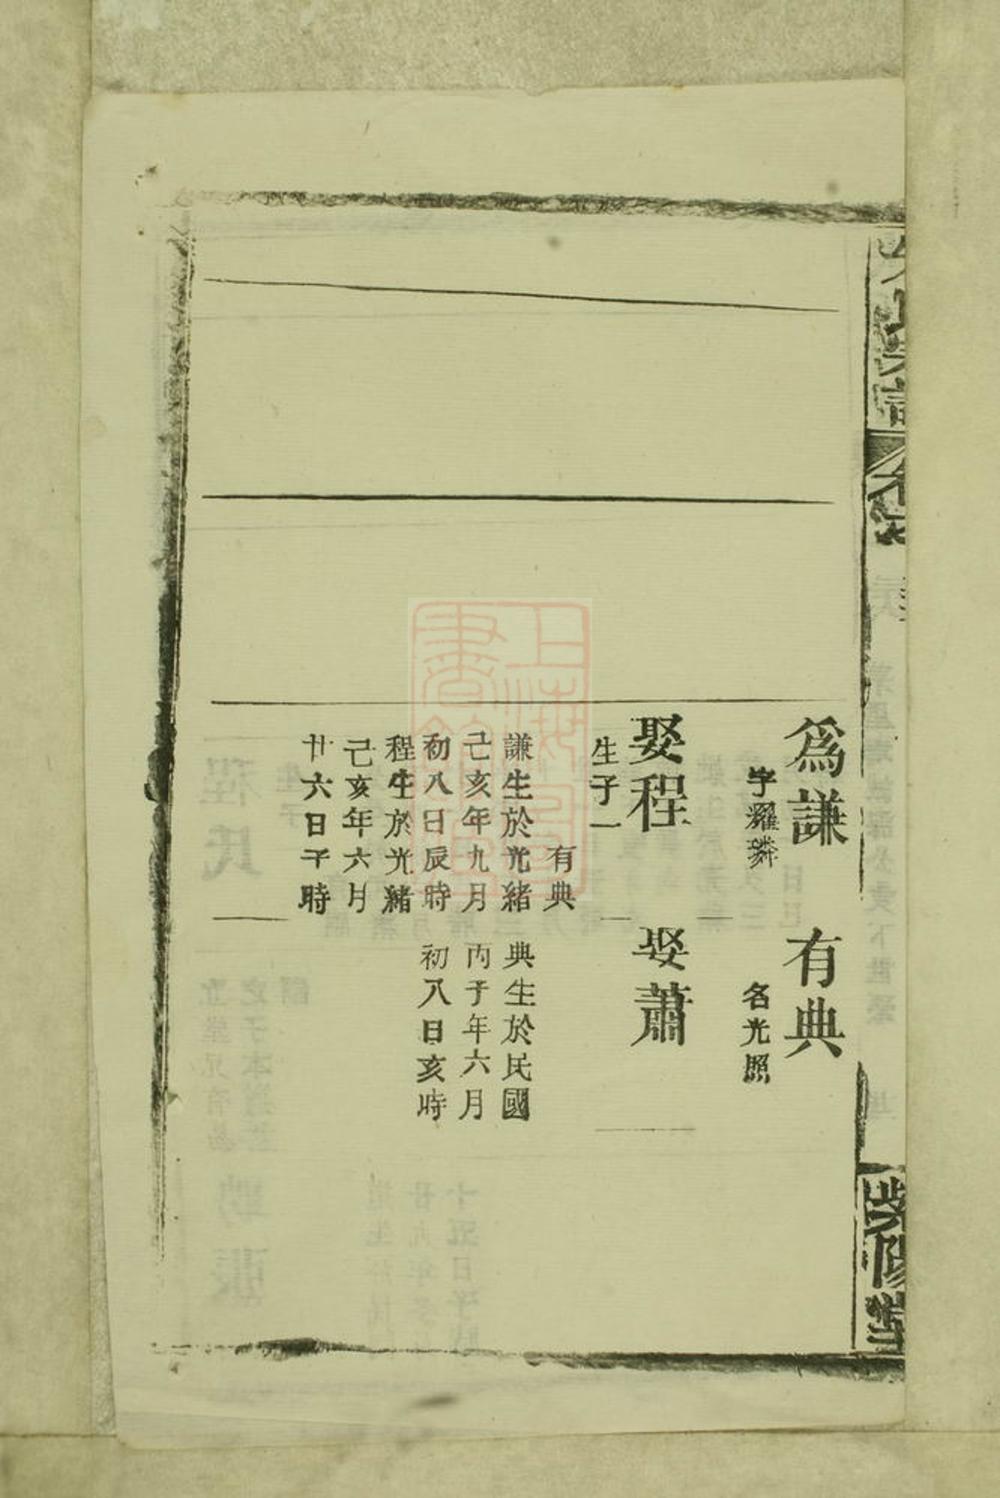 為謙
字耀璘
娶程
生子一
有典
謙生於光緒
己亥年九月
初八日辰時
程生於光緒
己亥年六月
廿六日子時
有典
名光照
娶蕭
典生於民國
丙子年六月
初八日亥時
紫陽堂
上海圖書館藏